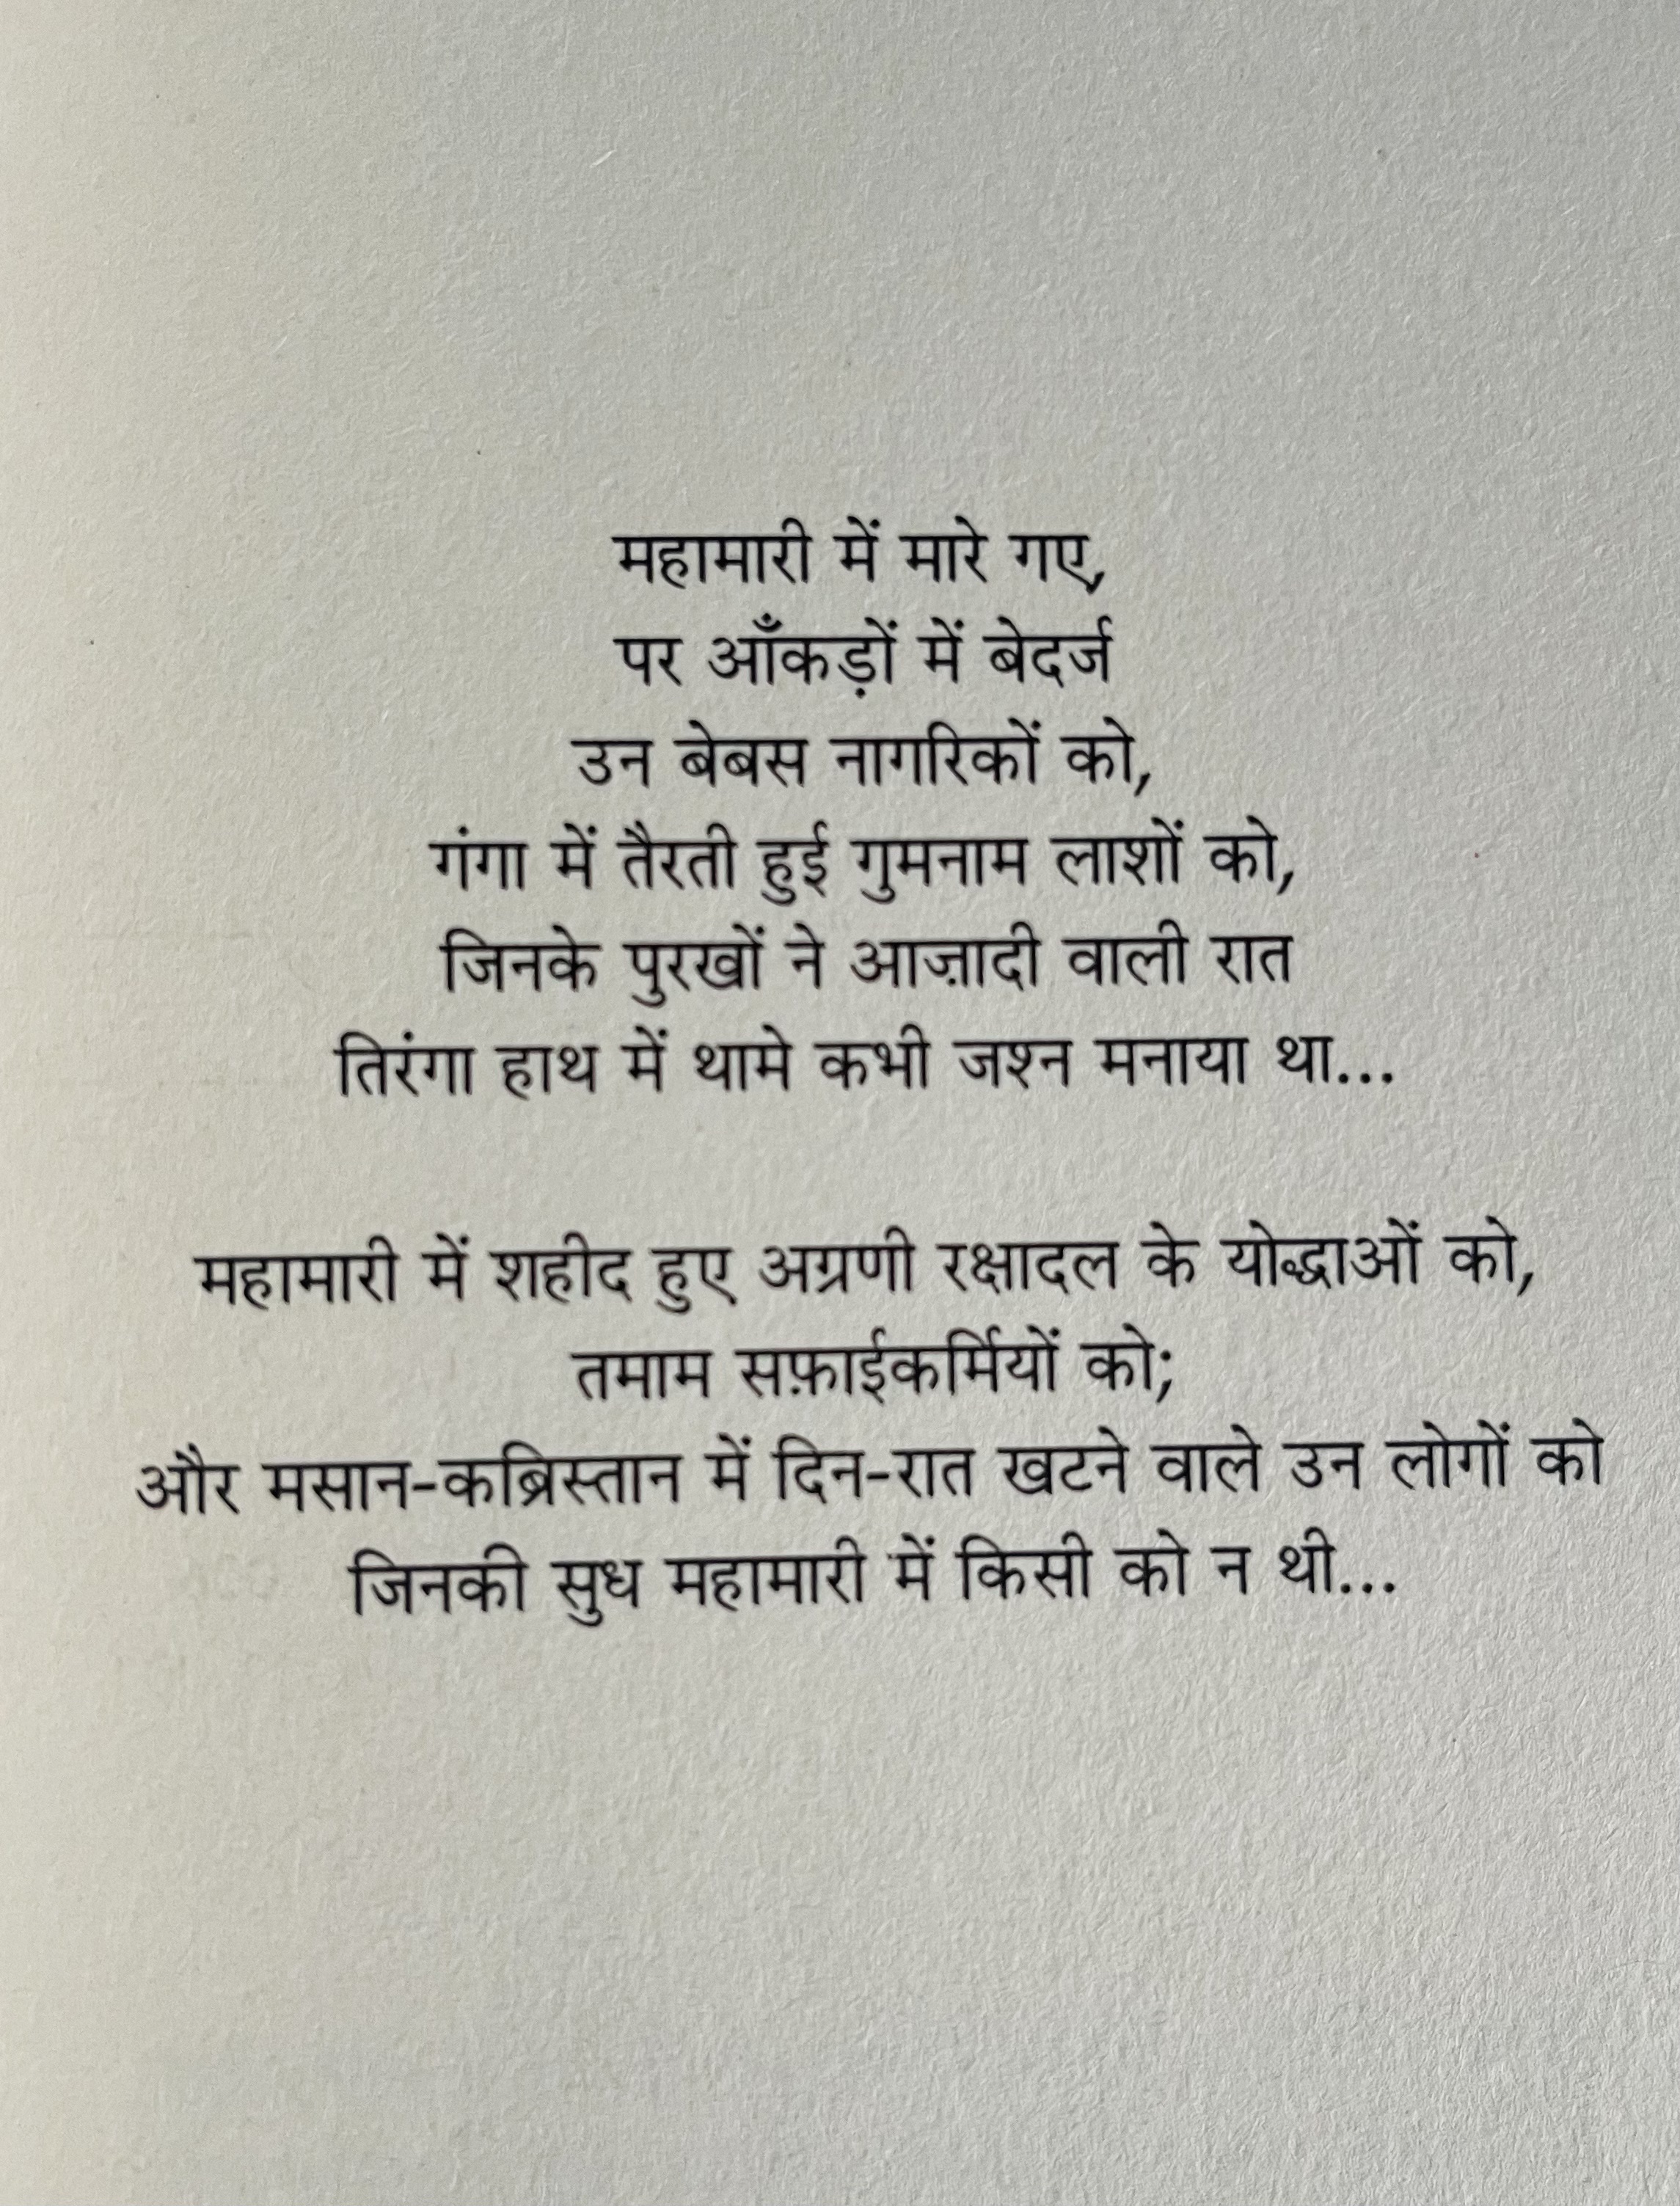 महामारी में मारे गए,
पर आँकड़ों में बेदर्ज
उन बेबस नागरिकों को,
गंगा में तैरती हुई गुमनाम लाशों को,
जिनके पुरखों ने आज़ादी वाली रात
तिरंगा हाथ में थामे कभी जश्न मनाया था...
महामारी में शहीद हुए अग्रणी रक्षादल के योद्धाओं को,
तमाम सफ़ाईकर्मियों को;
और मसान-कब्रिस्तान में दिन-रात खटने वाले उन लोगों को
जिनकी सुध महामारी में किसी को न थी...